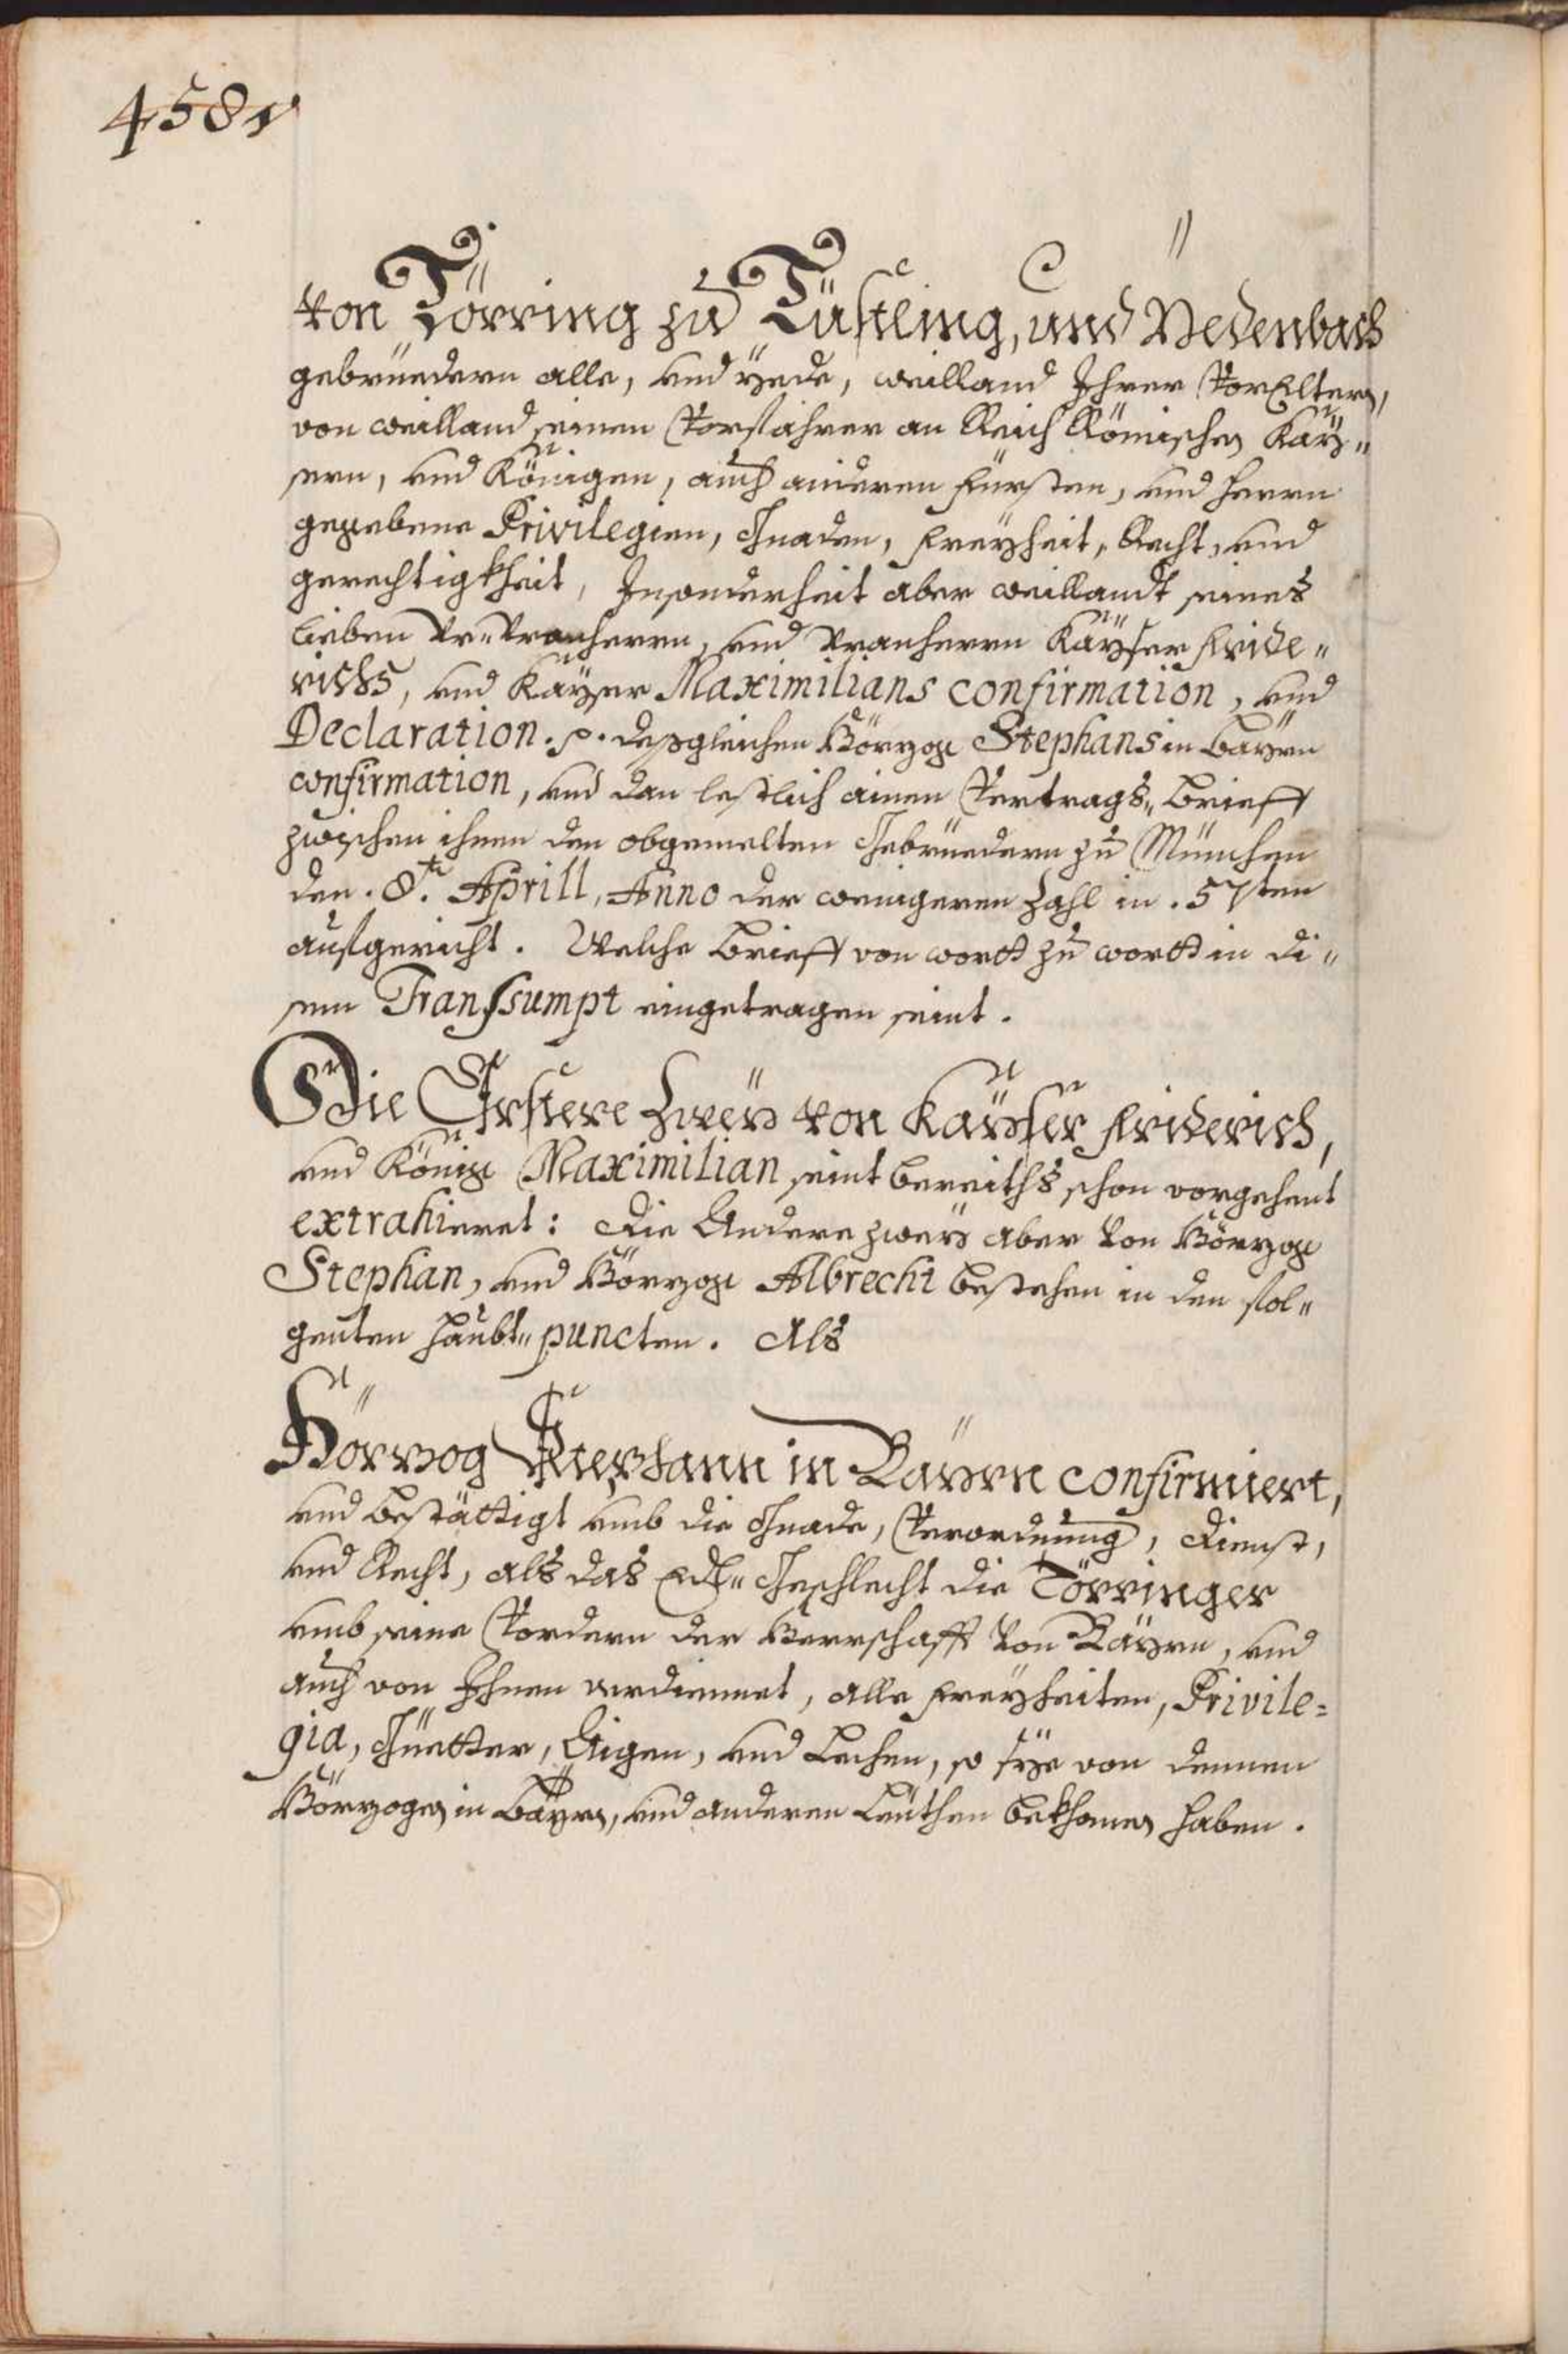 458v
von Törring zu Tüstling, und Nedenbach
gebrüedern alle, und yede, weilland Ihrer VorEltern,
von weilland seinen Vorfahrer am Reich Römischen Kaÿ„
sern, und Königen, auch anderen Fürsten, und herrn
gegebene Privilegien, Gnaden, Freyheit, Recht, und
gerechtigkheit, Insonderheit aber weillandt seines
lieben Vr„Vranherrn, und Vranherrn Kaÿser Fride„
richs, und Kaÿser Maximilians confirmation, und
Declaration .p. deßgleichen Hörzog Stephans in Baÿrn
confirmation, und dan lestlich ainen Vertrags„Brieff
zwischen ihnen den obgemelten Gebrüedern zu München
den .8.t Aprill, Anno der wenigeren Zahl in .57ten
aufgericht. Welche Brieff von wortt zu wortt in di„
sem Transsumpt eingetragen seint.
Die Erstere zweÿ von Kaÿser Friderich,
und König Maximilian seint bereiths schon vorgehent
extrahieret: die Andere zweÿ aber von Hörzog
Stephan, und Hörzog Albrecht bestehen in den fol„
genten haubt„puncten. Als
Hörzog Stephann in Baÿrn confirmiert,
und bestättigt umb die Gnade, Verordnung, dienst,
und Recht, als das Edl„Geschlecht die Törringer
umb seine Vordern der Herrschafft von Baÿrn, und
auch von Ihnen verdiennet, alle Freyheiten, Privile=
gia, Güetter, Aigen, und Lechen, so sÿe von dennen
Hörzogen in Baÿrn, und anderen Leuthen bekhomen haben.